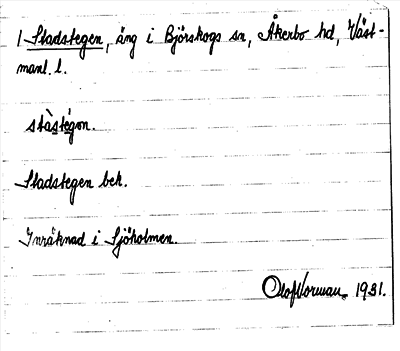 1 Stadstegen, äng i Björskogs sn, Åkerbo hd, Väst-
manl. l.
stàstégon.
Stadstegen bek.
Inräknad i Sjöholmen.
Olof Norman 1931.